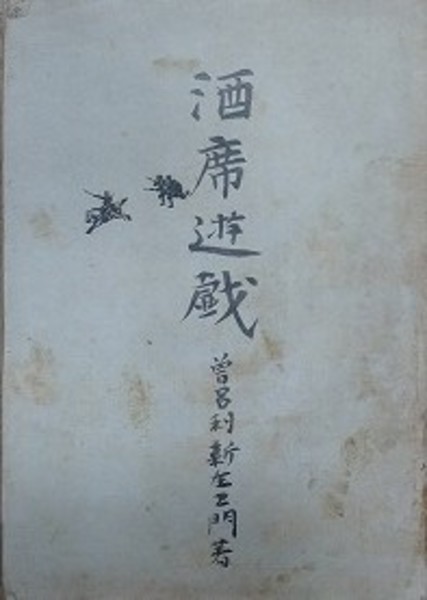 酒席遊戯
曾呂利新左エ門著